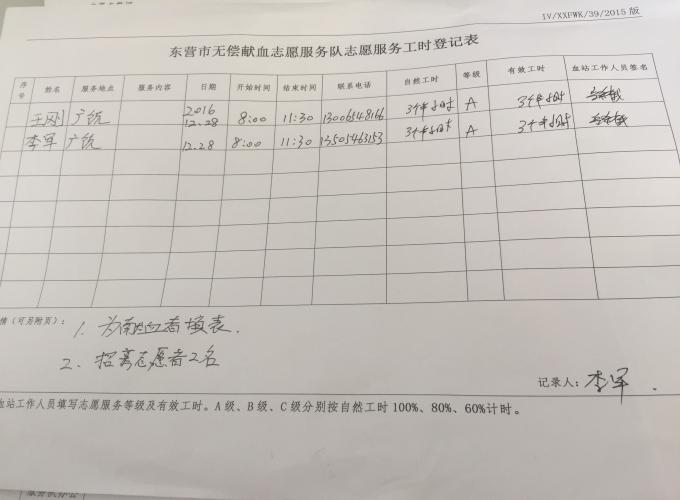 IV/XXFWK/39/2015 版
东营市无偿献血志愿服务队志愿服务工时登记表
序号 姓名 服务地点 服务内容 日期 开始时间 结束时间 联系电话 自然工时 等级 有效工时 血站工作人员签名
王刚 广饶 2016 12.28 8:00 11:30 13006548166 3个半小时 A 3个半小时
李军 广饶 12.28 8:00 11:30 13505463153 3个半小时 A 3个半小时
情(可另附页):
1. 为献血者填表.
2、招募志愿者2名
记录人: 李军
血站工作人员填写志愿服务等级及有效工时。A 级、B 级、C 级分别按自然工时 100%、80%、60%计时。